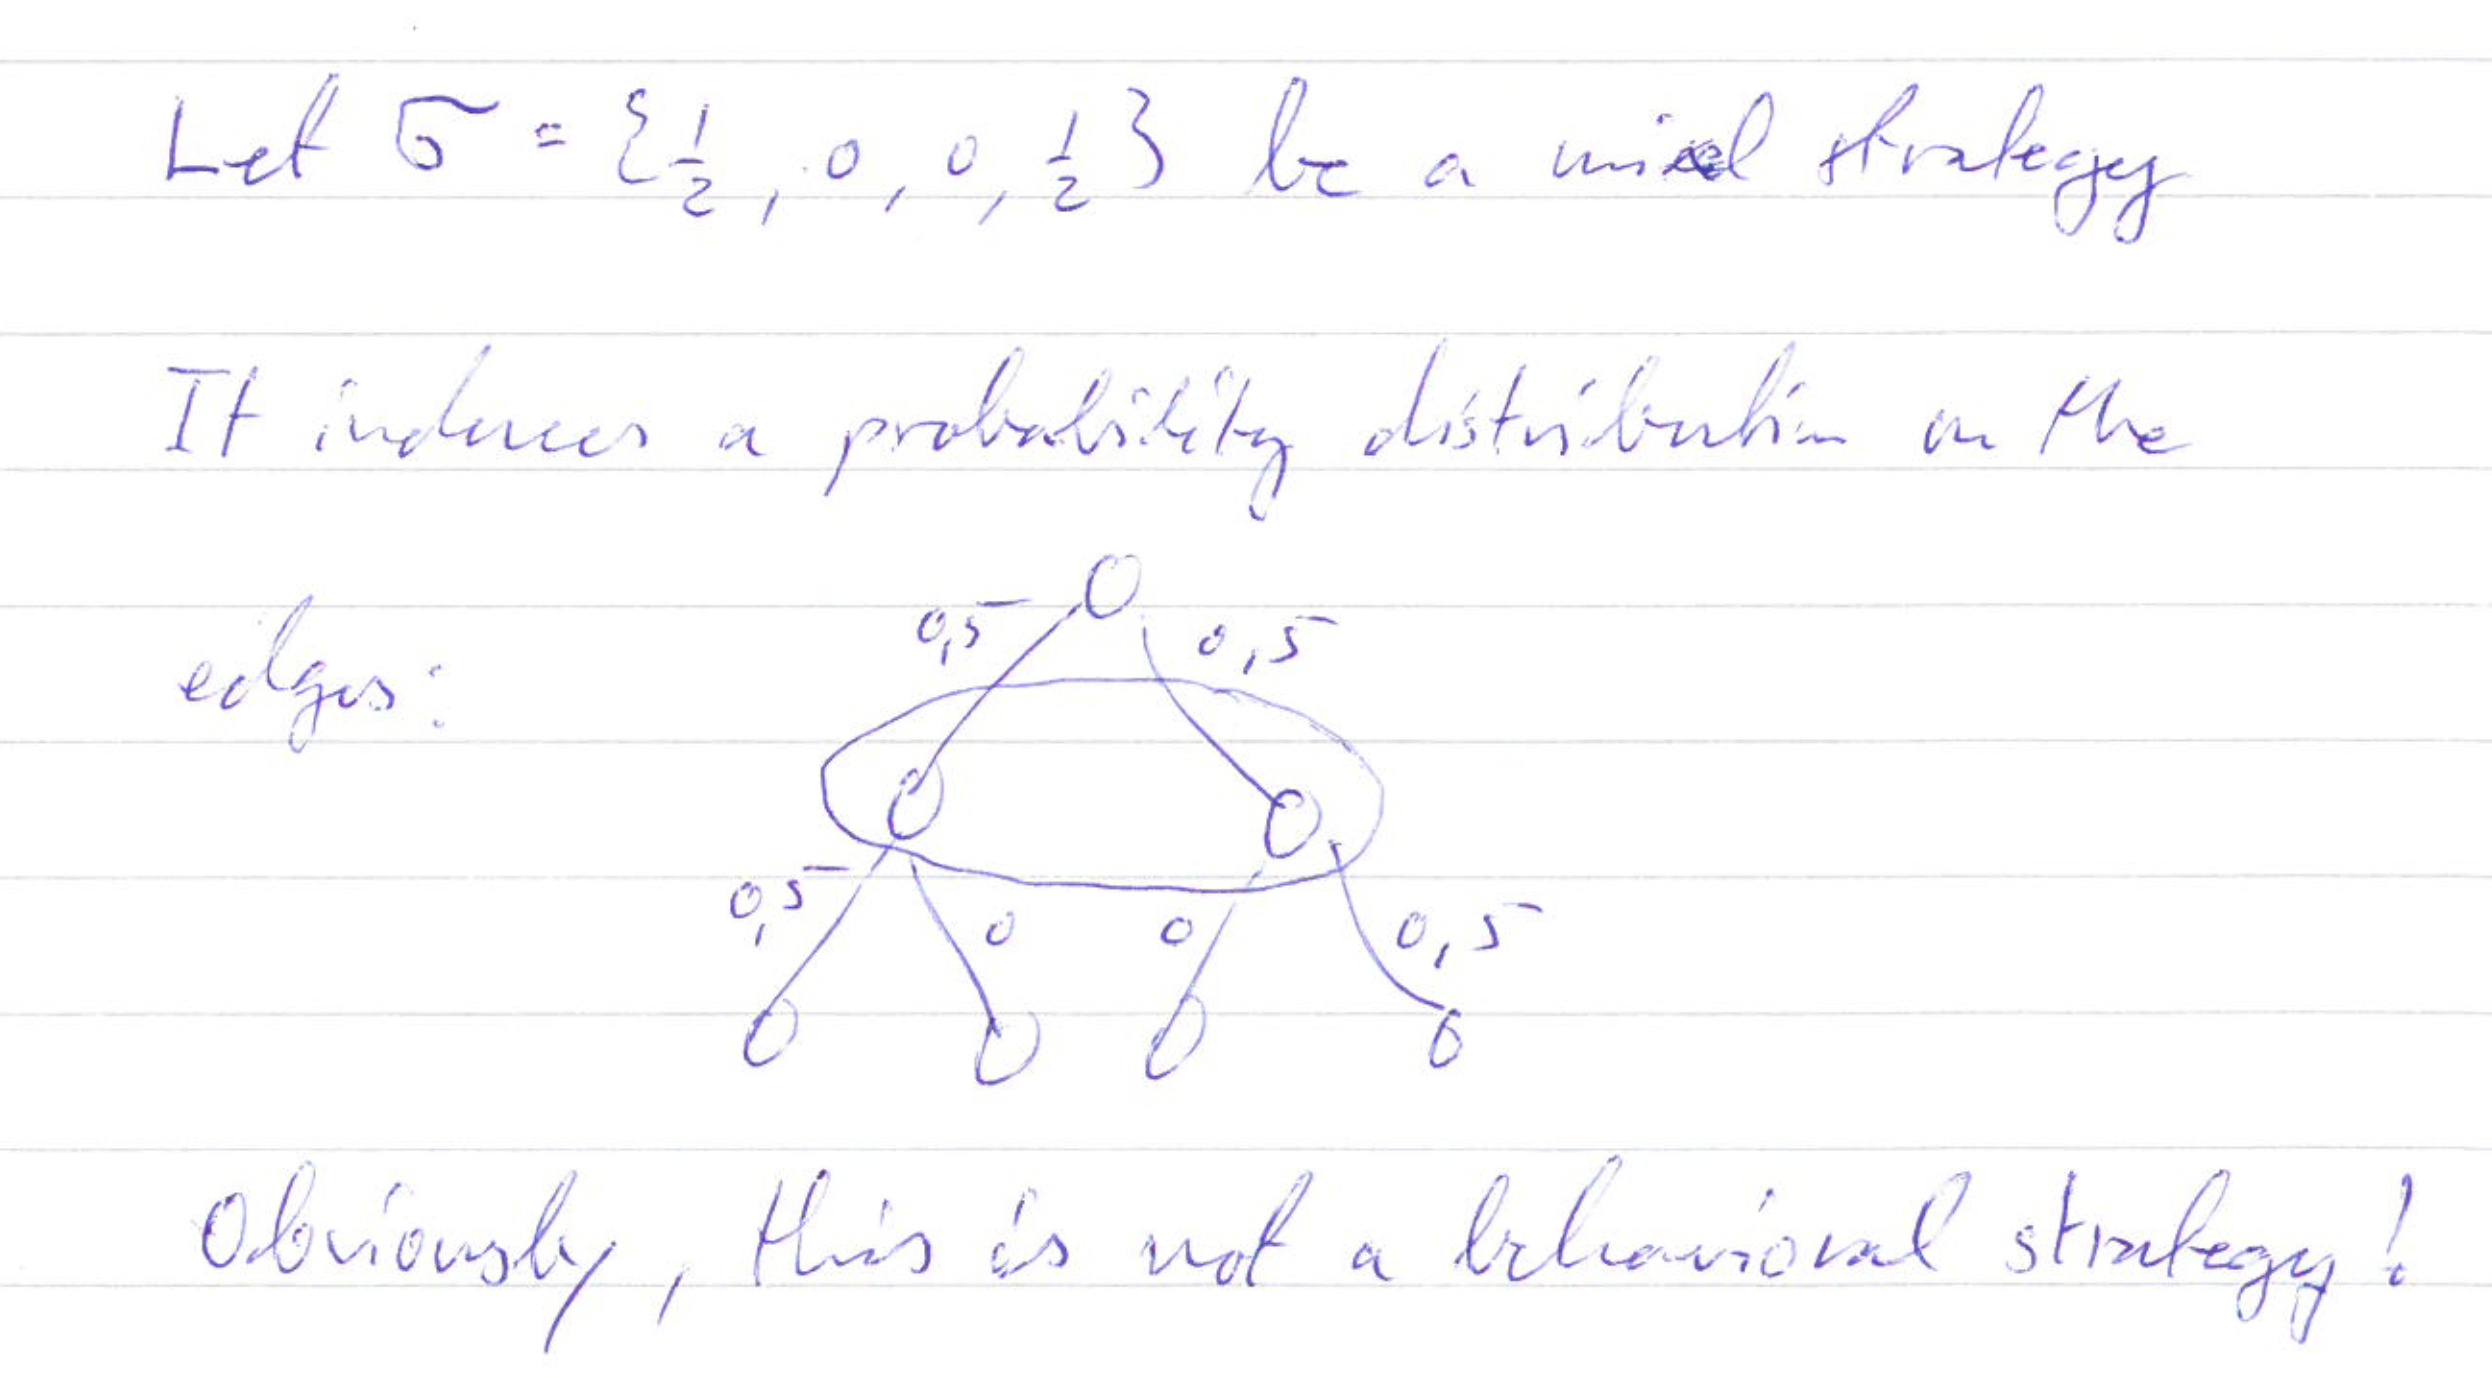 Let σ = {1/2, 0, 0, 1/2} be a mixed strategy
It induces a probability distribution on the
edges:
0,5 0,5
0,5 0 0 0,5
Obviously, this is not a behavioral strategy!